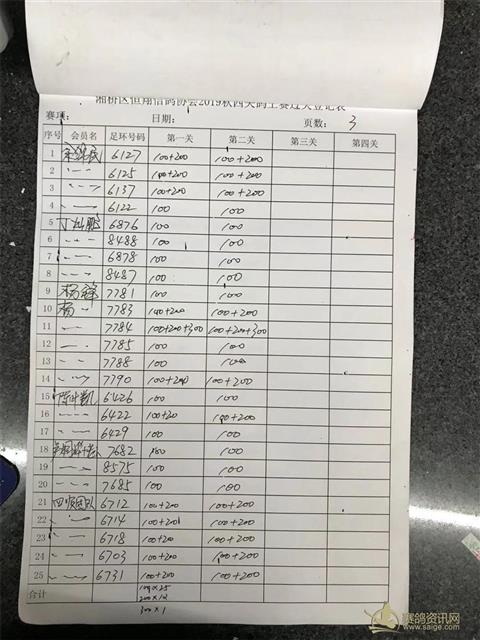 湘桥区恒翔信鸽协会2019秋四关鸽王赛过关登记表
赛项: 日期: 页数: 3
序号 会员名 足环号码 第一关 第二关 第三关 第四关
1 6127 100+200 100+200
2 6125 100+200 100+200
3 6137 100+200 100+200
4 6122 100 100
5 6876 100 100
6 8488 100 100
7 6878 100 100
8 8487 100 100
9 杨 7781 100 100
10 杨 7783 100+200 100+200
11 7784 100+200+300 100+200+300
12 7785 100 100
13 7788 100 100
14 7790 100+200 100+200
15 6426 100 100
16 6422 100+200 100+200
17 6429 100 100
18 7682 100 100
19 8575 100 100
20 7685 100 100
21 四顺团队 6712 100+200 100+200
22 6714 100+200 100+200
23 6718 100+200 100+200
24 6703 100+200 100+200
25 6731 100+200 100+200
合计 100×25
200×12
300×1
赛鸽资讯网
www.saige.com